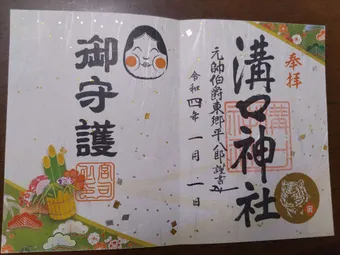 奉拝
溝口神社
元帥伯爵東郷平八郎謹書
令和四年一月一日
御守護